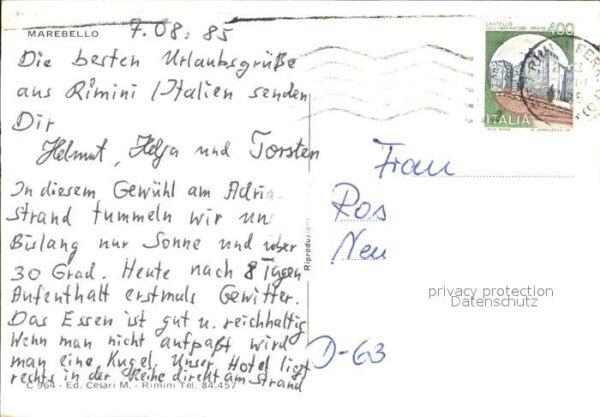 MAREBELLO
7.08.85
Die besten Urlaubsgrüße
aus Rimini/Italien senden
Dir
Helmut, Helga und Torsten
In diesem Gewühl am Adria-
strand tummeln wir uns
Bislang nur Sonne und über
30 Grad. Heute nach 8 Tgen
Aufenthalt erstmals Gewitter.
Das Essen ist gut u. reichhaltig
Wenn man nicht aufpaßt wird
man eine Kugel. Unser Hotel ligt
rechts in der Reihe direkt am Strand
C 964 - Ed. Cesari M. - Rimini Tel. 84.457
Riproduzione
CASTELLO
DELL'IMPERATORE PRATO
400
ITALIA
Frau
Ros
Neu
D-63
privacy protection
Datenschutz